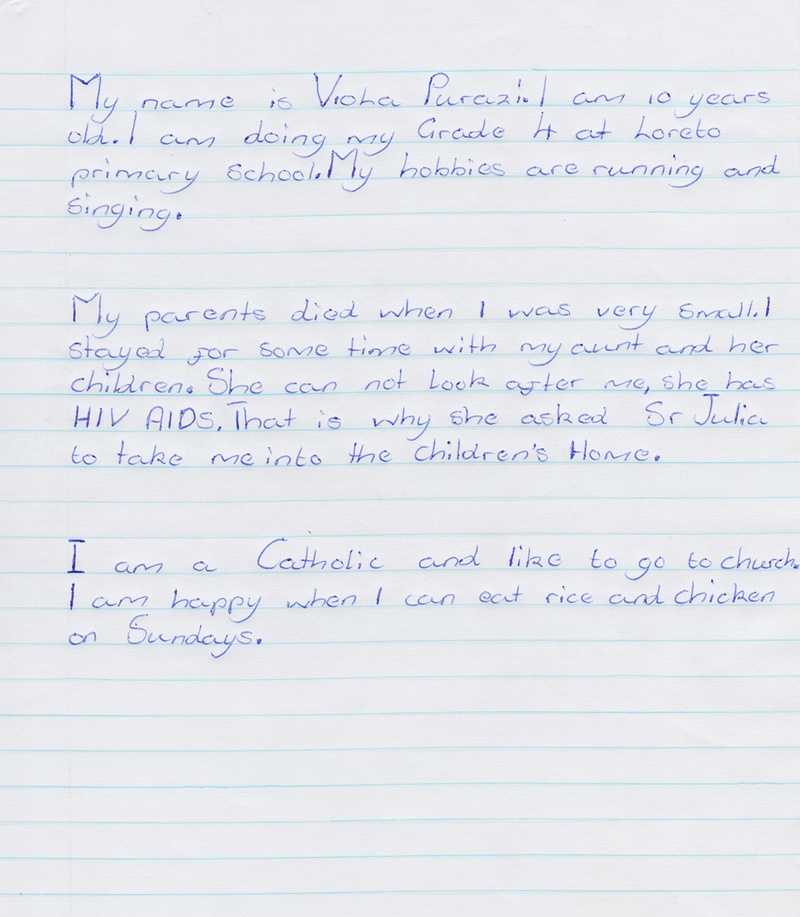 My name is Vioha Purazi. I am 10 years
old. I am doing my Grade 4 at Loreto
primary school. My hobbies are running and
singing.
My parents died when I was very small. I
stayed for some time with my aunt and her
children. She can not look after me, she has
HIV AIDS. That is why she asked Sr Julia
to take me into the Children's Home.
I am a Catholic and like to go to church.
I am happy when I can eat rice and chicken
on Sundays.